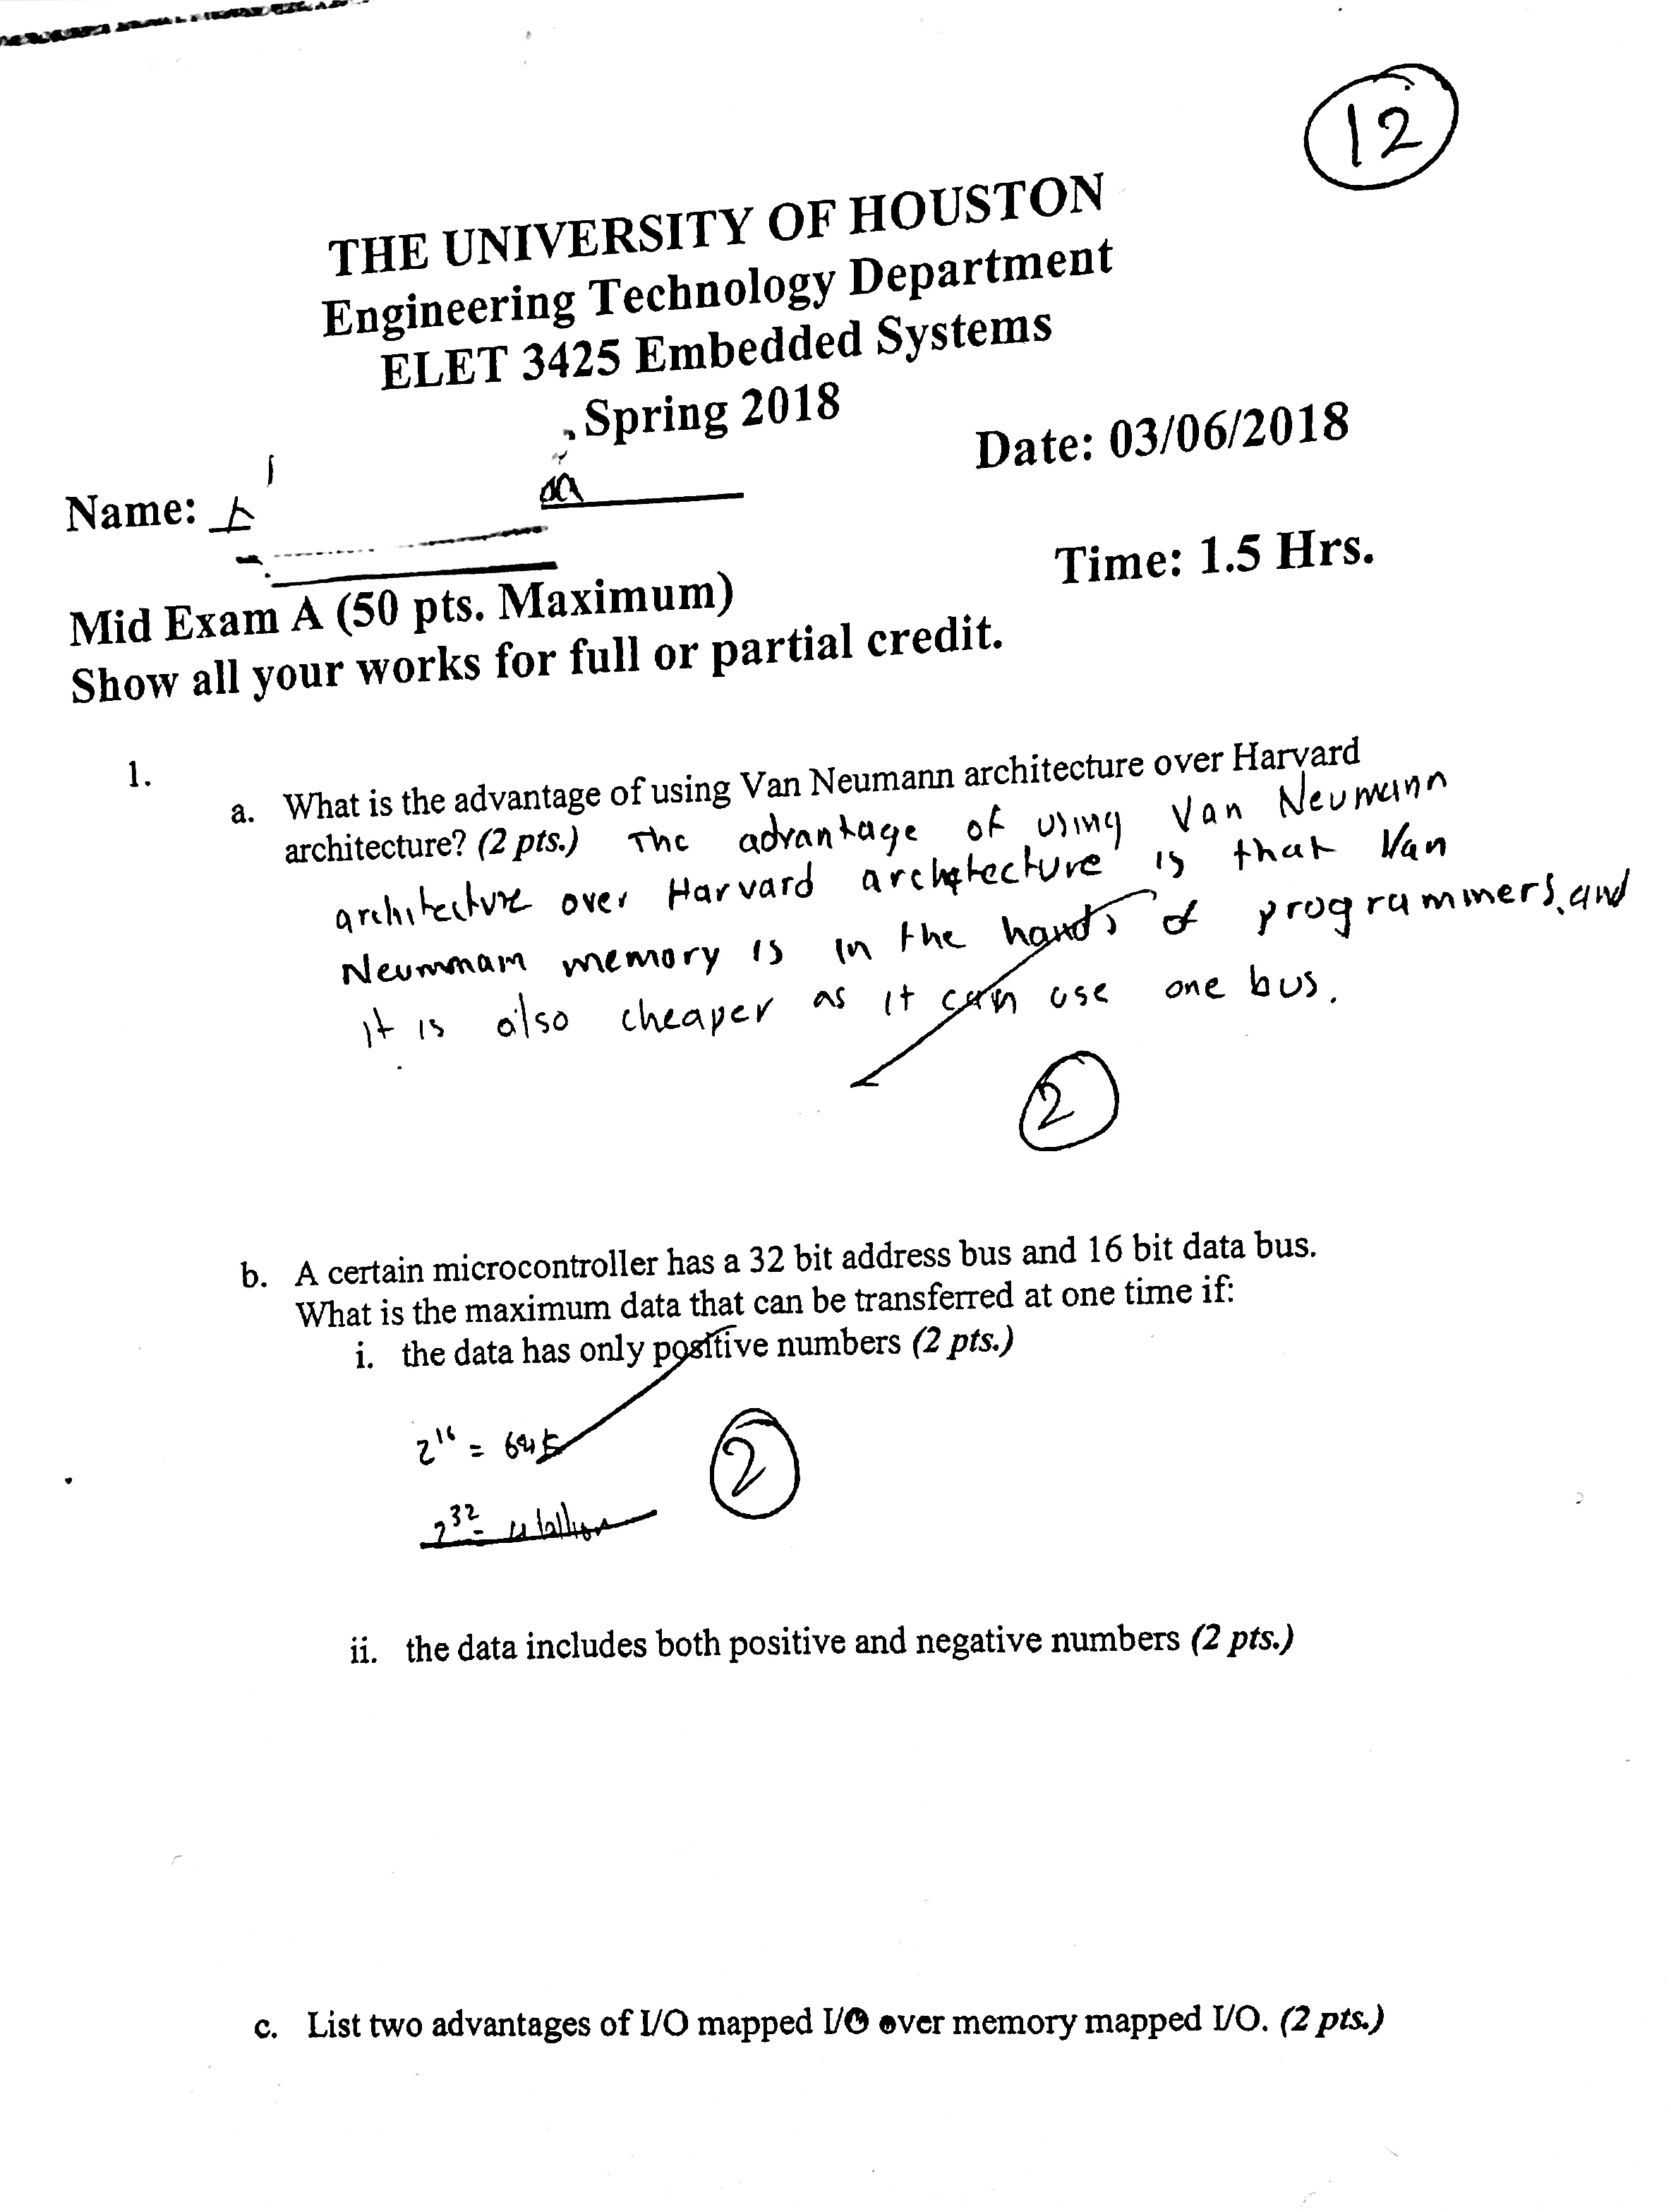 12
THE UNIVERSITY OF HOUSTON
Engineering Technology Department
ELET 3425 Embedded Systems
Spring 2018
Date: 03/06/2018
Name:
Time: 1.5 Hrs.
Mid Exam A (50 pts. Maximum)
Show all your works for full or partial credit.
1.
a. What is the advantage of using Van Neumann architecture over Harvard
architecture? (2 pts.) The advantage of using Van Neumann
architecture over Harvard architecture is that Van
Neumman memory is in the hands of programmers, and
it is also cheaper as it can use one bus.
2
b. A certain microcontroller has a 32 bit address bus and 16 bit data bus.
What is the maximum data that can be transferred at one time if:
i. the data has only positive numbers (2 pts.)
2^16 =
2
2^32 =
ii. the data includes both positive and negative numbers (2 pts.)
c. List two advantages of I/O mapped I/O over memory mapped I/O. (2 pts.)